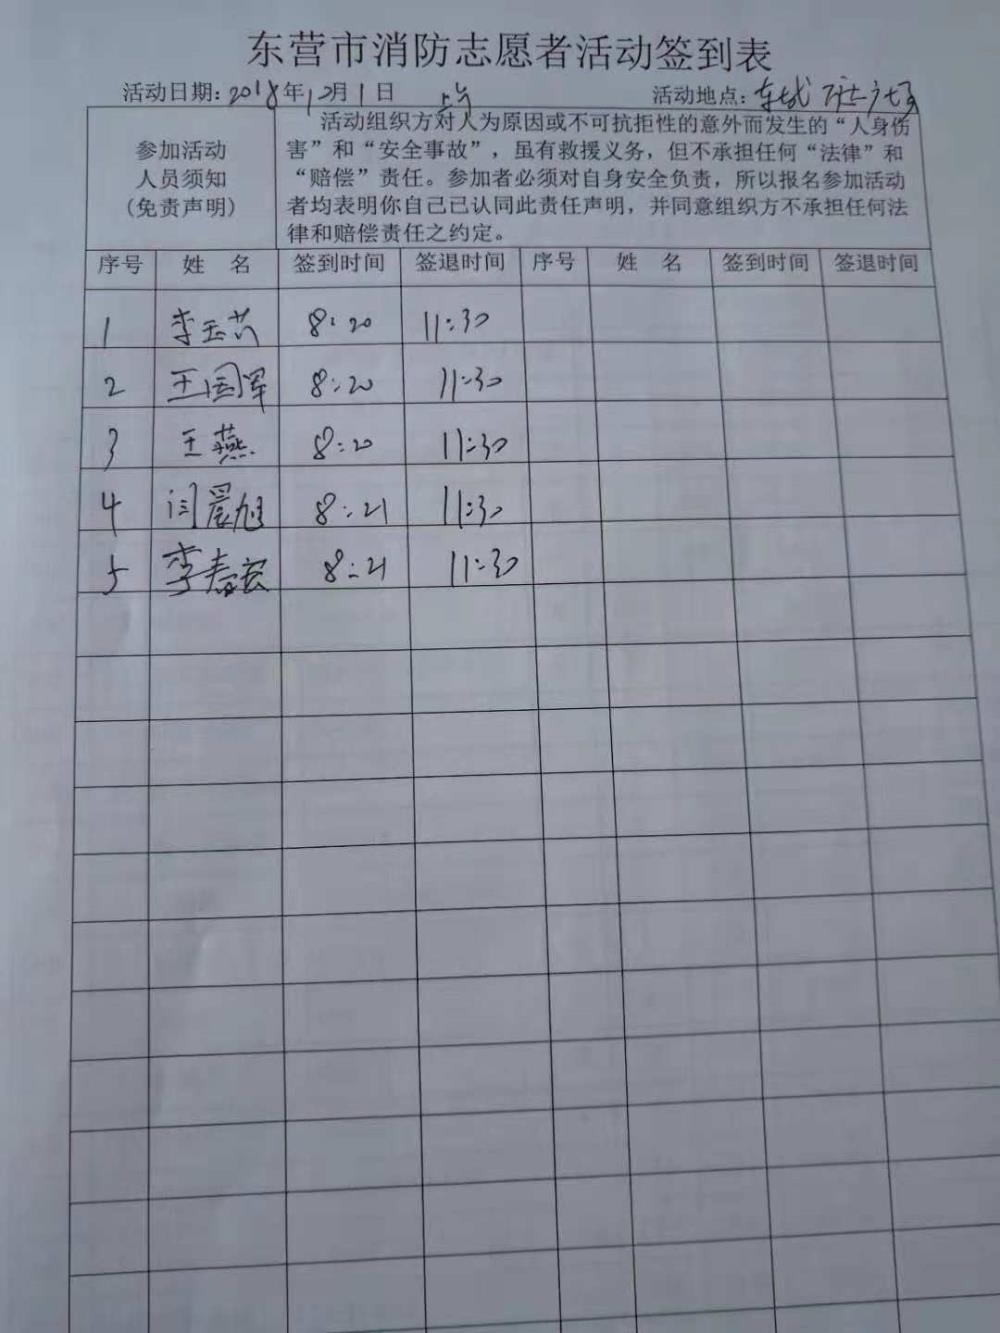 东营市消防志愿者活动签到表
活动日期:2018年12月1日 上午 活动地点:东城
参加活动
人员须知
(免责声明)
活动组织方对人为原因或不可抗拒性的意外而发生的“人身伤
害”和“安全事故”，虽有救援义务，但不承担任何“法律”和
“赔偿”责任。参加者必须对自身安全负责，所以报名参加活动
者均表明你自己已认同此责任声明，并同意组织方不承担任何法
律和赔偿责任之约定。
序号 姓 名 签到时间 签退时间 序号 姓 名 签到时间 签退时间
1 李玉芳 8:20 11:30
2 王国军 8:20 11:30
3 王燕 8:20 11:30
4 闫晨旭 8:21 11:30
5 李春宏 8:21 11:30